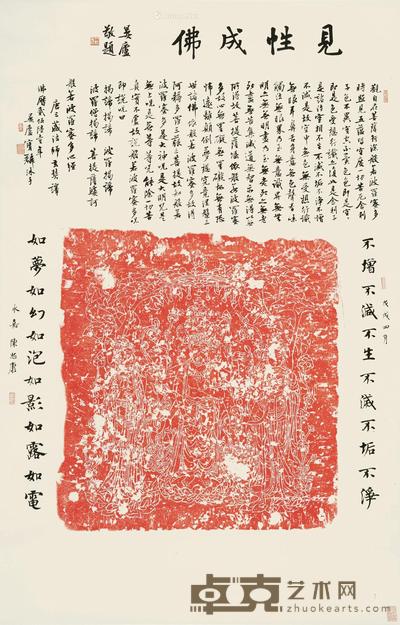 見性成佛
晏廬敬題
觀自在菩薩行深般若波羅蜜多
時照見五蘊皆空度一切苦厄舍利
子色不異空空不異色色即是空空
即是色受想行識亦復如是舍利子
是諸法空相不生不滅不垢不淨不增
不減是故空中無色無受想行識
無眼耳鼻舌身意無色聲香味
觸法無眼界乃至無意識界無無
明亦無無明盡乃至無老死亦無老
死盡無苦集滅道無智亦無得以無所
得故菩提薩埵依般若波羅蜜
多故心無罣礙無罣礙故無有恐
怖遠離顛倒夢想究竟涅槃三
世諸佛依般若波羅蜜多故得
阿耨多羅三藐三菩提故知般若
波羅蜜多是大神咒是大明咒是
無上咒是無等等咒能除一切苦
真實不虛故說般若波羅蜜多咒
即說咒曰
揭諦揭諦 波羅揭諦
波羅僧揭諦 菩提薩婆訶
般若波羅蜜多心經
唐三藏法師玄奘譯
戊戌四月
不增不減不生不滅不垢不淨
如夢如幻如泡如影如露如電
永嘉
卓克艺术网
zhuokearts.com